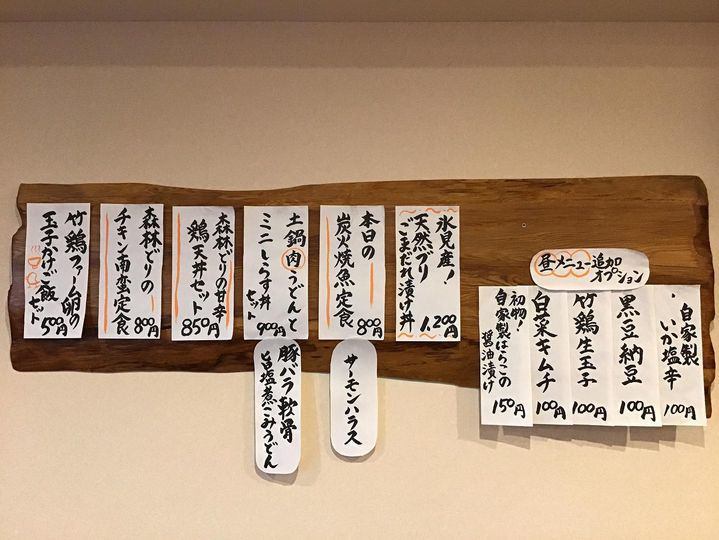 昼メニュー追加
オプション
自家製
いか塩辛
100円
黒豆納豆
100円
竹鶏生玉子
100円
白菜キムチ
100円
初物!
自家製はらこの
醤油漬け
150円
氷見産!
天然ブリ
ごまだれ漬け丼
1,200円
本日の
炭火焼魚定食
800円
サーモンハラス
土鍋肉うどんと
ミニしらす丼
セット
900円
豚バラ軟骨
旨塩煮こみうどん
森林どりの甘辛
鶏天丼セット
850円
森林どりの
チキン南蛮定食
800円
竹鶏ファーム卵の
玉子かけご飯
セット
500円